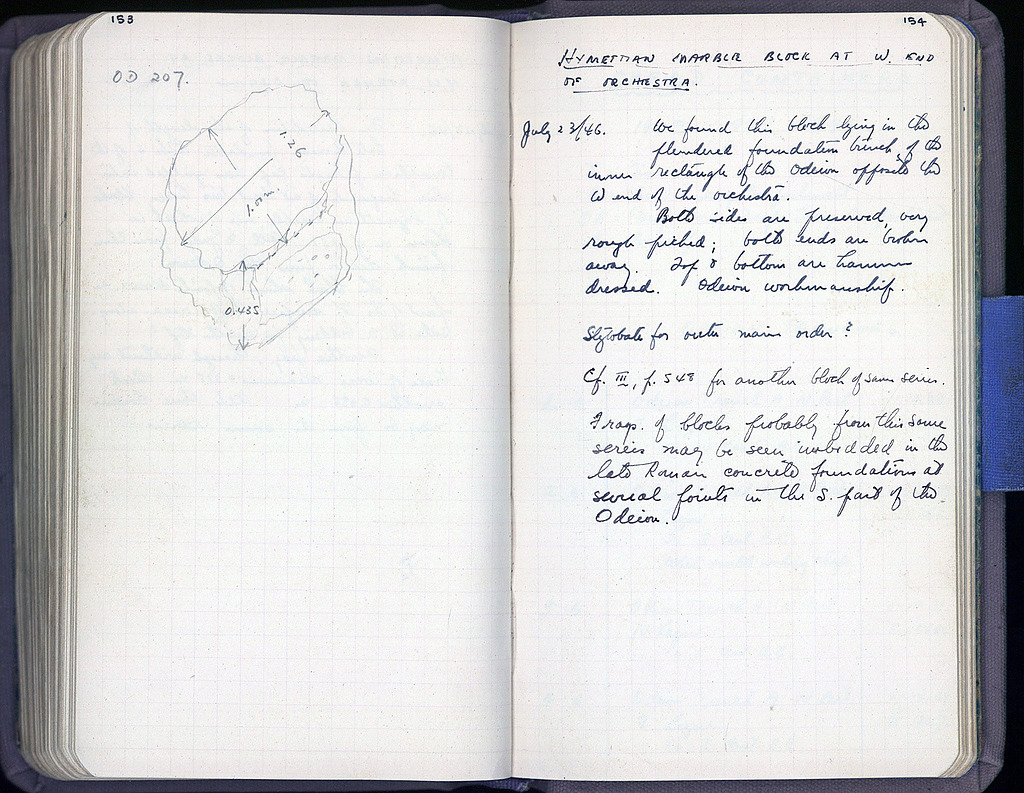 153
OD 207.
1.26
1.00 m.
0.435
154
HYMETTIAN MARBLE BLOCK AT W. END
OF ORCHESTRA.
July 23/46. We found this block lying in the
plundered foundation trench of the
inner rectangle of the Odeion opposite the
W end of the orchestra.
Both sides are preserved, very
rough picked; both ends are broken
away. Top & bottom are hammer
dressed. Odeion workmanship.
Stylobate for outer main order?
Cf. III, p. 548 for another block of same series.
Frags. of blocks probably from this same
series may be seen imbedded in the
late Roman concrete foundations at
several points in the S. part of the
Odeion.